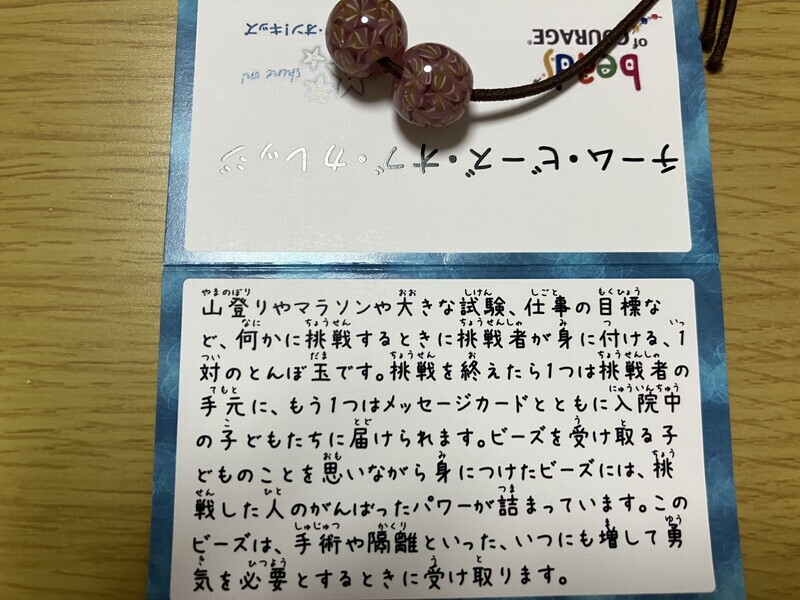 ・オン!キッズ
shine on!
beads
of COURAGE®
チーム・ビーズ・オブ・カレッジ
山登りやマラソンや大きな試験、仕事の目標な
ど、何かに挑戦するときに挑戦者が身に付ける、1
対のとんぼ玉です。挑戦を終えたら1つは挑戦者の
手元に、もう1つはメッセージカードとともに入院中
の子どもたちに届けられます。ビーズを受け取る子
どものことを思いながら身につけたビーズには、挑
戦した人のがんばったパワーが詰まっています。この
ビーズは、手術や隔離といった、いつにも増して勇
気を必要とするときに受け取ります。